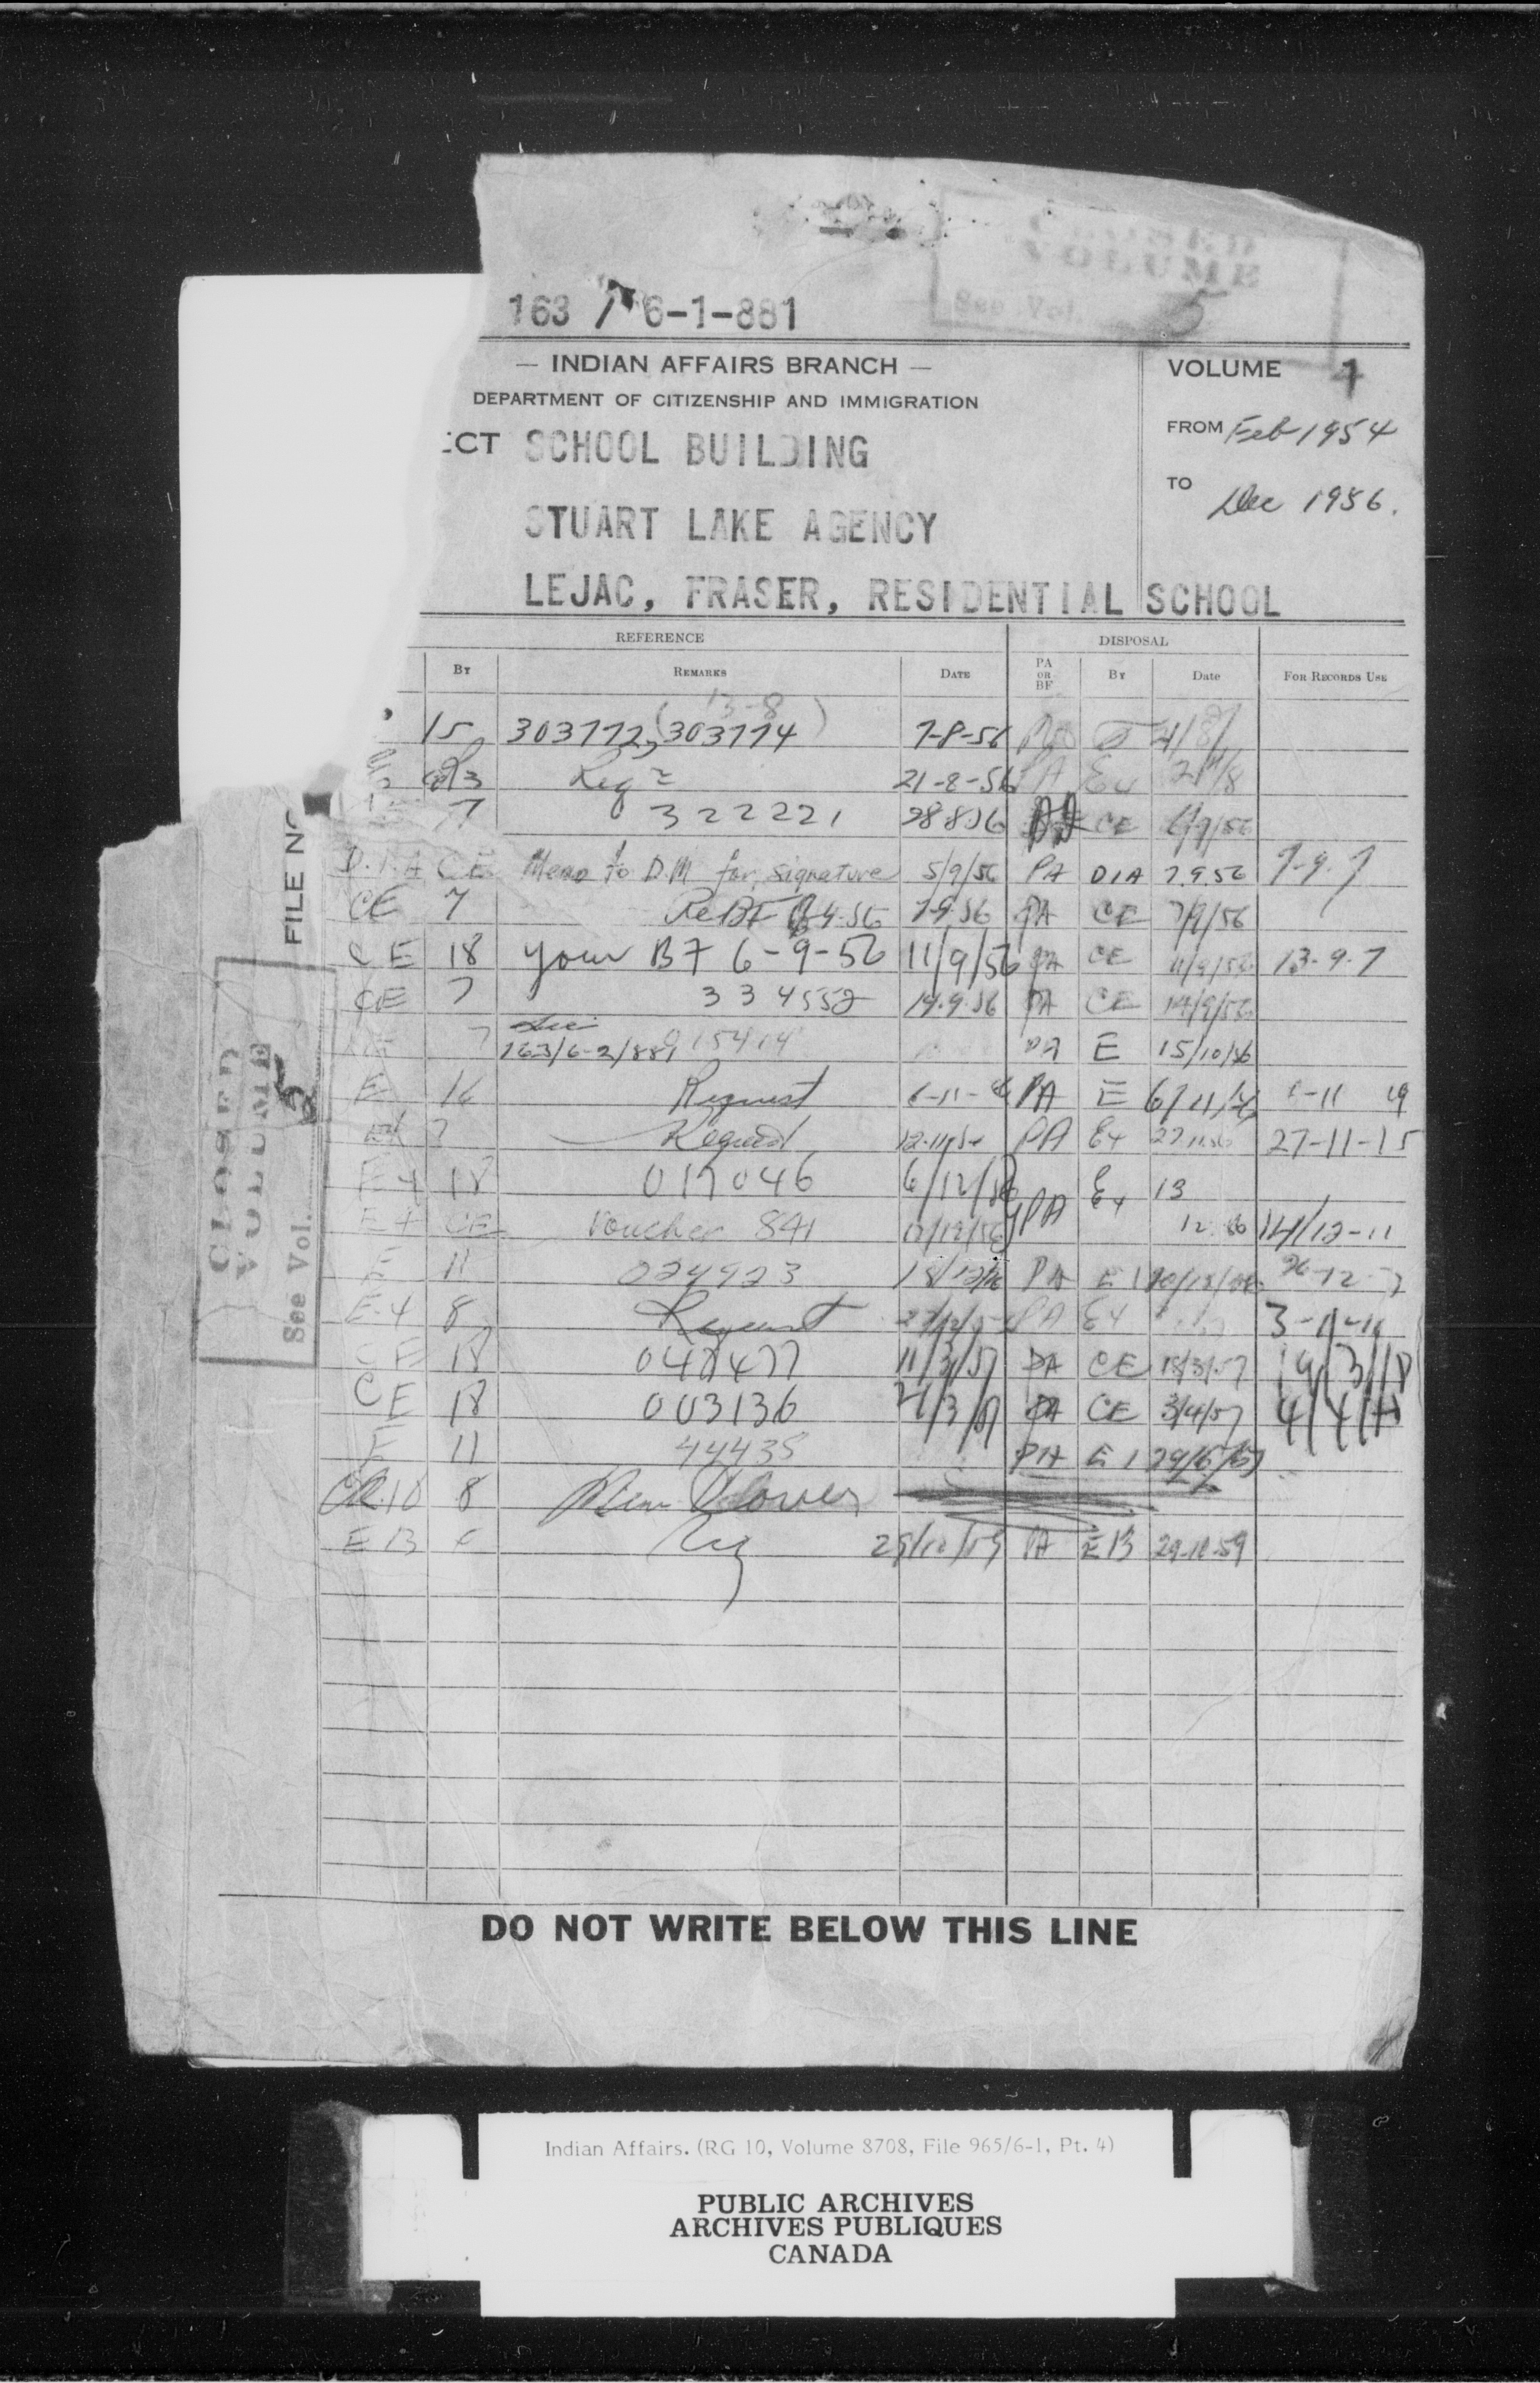 CLOSED
VOLUME
See Vol. 5
163 / 6-1-881
— INDIAN AFFAIRS BRANCH —
DEPARTMENT OF CITIZENSHIP AND IMMIGRATION
VOLUME 4
FROM Feb 1954
TO Dec 1956.
ECT SCHOOL BUILDING
STUART LAKE AGENCY
LEJAC, FRASER, RESIDENTIAL SCHOOL
FILE NO
CLOSED
VOLUME
See Vol. 5
REFERENCE DISPOSAL
BY REMARKS DATE PA OR BF BY Date FOR RECORDS USE
13-8
15 303772, (303774) 7-8-56
Reqn 21-8-56 PA E4
7 322221 28 8 56 CE
D.I.A CE Memo to D.M for signature 5/9/56 PA DIA 7.9.56 7-9-7
CE 7 Re BF 7-9-56 PA CE 7/9/56
CE 18 your BF 6-9-56 11/9/56 PA CE 11/9/56 13-9-7
CE 7 334552 14.9.56 PA CE 14/9/56
7 163/6-2/881 015414 PA E 15/10/56
E 16 Request PA E 6/11/56
7 Request PA E4 27-11-15
E4 18 017046 6/12/56 PA E4 13
E4 CE Voucher 841 12/12/56 12 56 14/12-11
E 11 024923 18/12/56 PA E1 26-12-7
E4 8 Request PA E4
CE 18 11/3/57 PA CE 18/3/57 19/3/18
CE 18 003136 PA CE 3/4/57
E 11 44435 PA E1
8
E13 Req PA E13 29-12-59
DO NOT WRITE BELOW THIS LINE
Indian Affairs. (RG 10, Volume 8708, File 965/6-1, Pt. 4)
PUBLIC ARCHIVES
ARCHIVES PUBLIQUES
CANADA